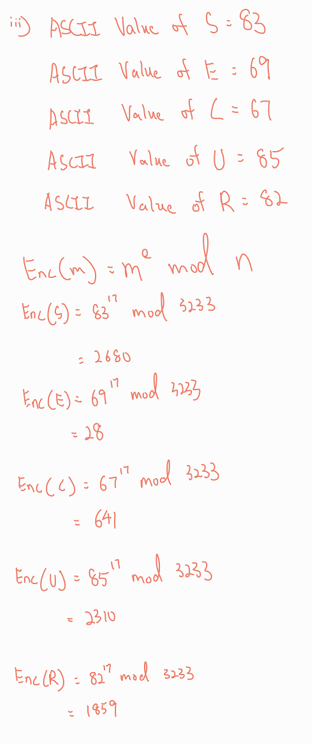 iii) ASCII Value of S = 83
ASCII Value of E = 69
ASCII Value of C = 67
ASCII Value of U = 85
ASCII Value of R = 82
Enc(m) = m^e mod n
Enc(S) = 83^17 mod 3233
= 2680
Enc(E) = 69^17 mod 3233
= 28
Enc(C) = 67^17 mod 3233
= 641
Enc(U) = 85^17 mod 3233
= 2310
Enc(R) = 82^17 mod 3233
= 1859